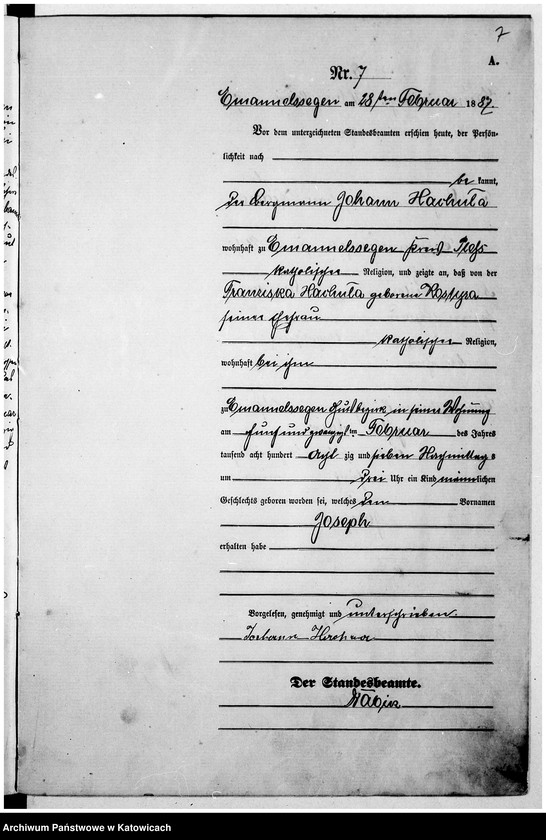 7
A.
Nr. 7
Emanuelssegen am 28ten Februar 1887
Vor dem unterzeichneten Standesbeamten erschien heute, der Persön-
lichkeit nach
be kannt,
der Bergmann Johann Hachuła
wohnhaft zu Emanuelssegen Kreis Pleß
katholischer Religion, und zeigte an, daß von der
Franziska Hachuła geborene Kostyra
seiner Ehefrau
katholischer Religion,
wohnhaft bei ihm
zu Emanuelssegen Gutsbezirk in seiner Wohnung
am fünf und zwanzigsten Februar des Jahres
tausend acht hundert acht zig und sieben Nachmittags
um drei Uhr ein Kind männlichen
Geschlechts geboren worden sei, welches den Vornamen
Joseph
erhalten habe
Vorgelesen, genehmigt und unterschrieben
Johann
Der Standesbeamte.
Archiwum Państwowe w Katowicach